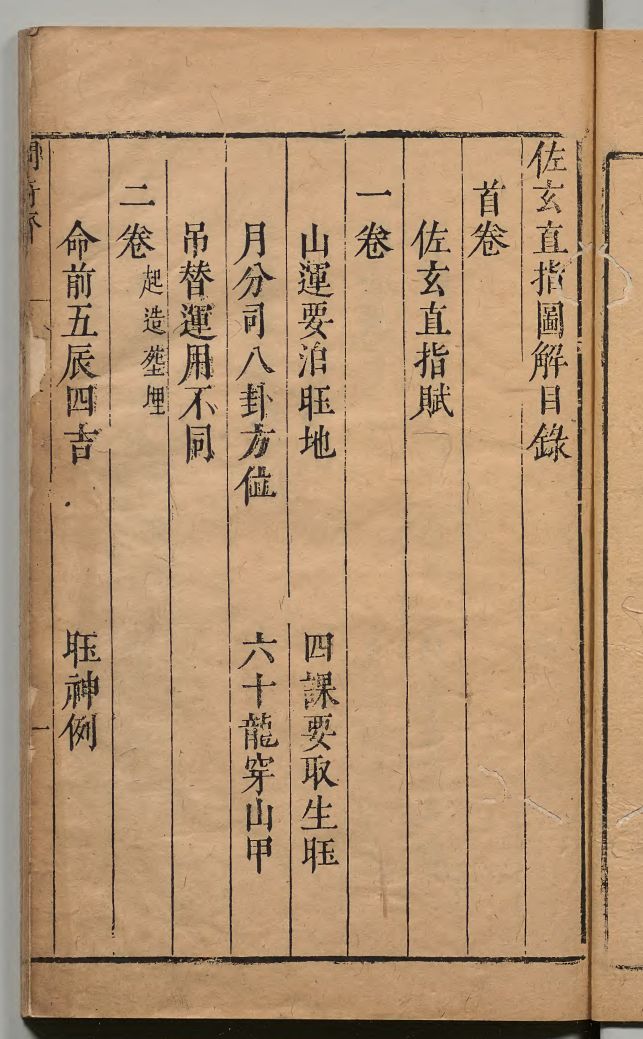 佐玄直指圖解目錄
首卷
佐玄直指賦
一卷
山運要泊旺地　四課要取生旺
月分司八卦方位　六十龍穿山甲
吊替運用不同
二卷　起造塟埋
命前五辰四吉　旺神例
一